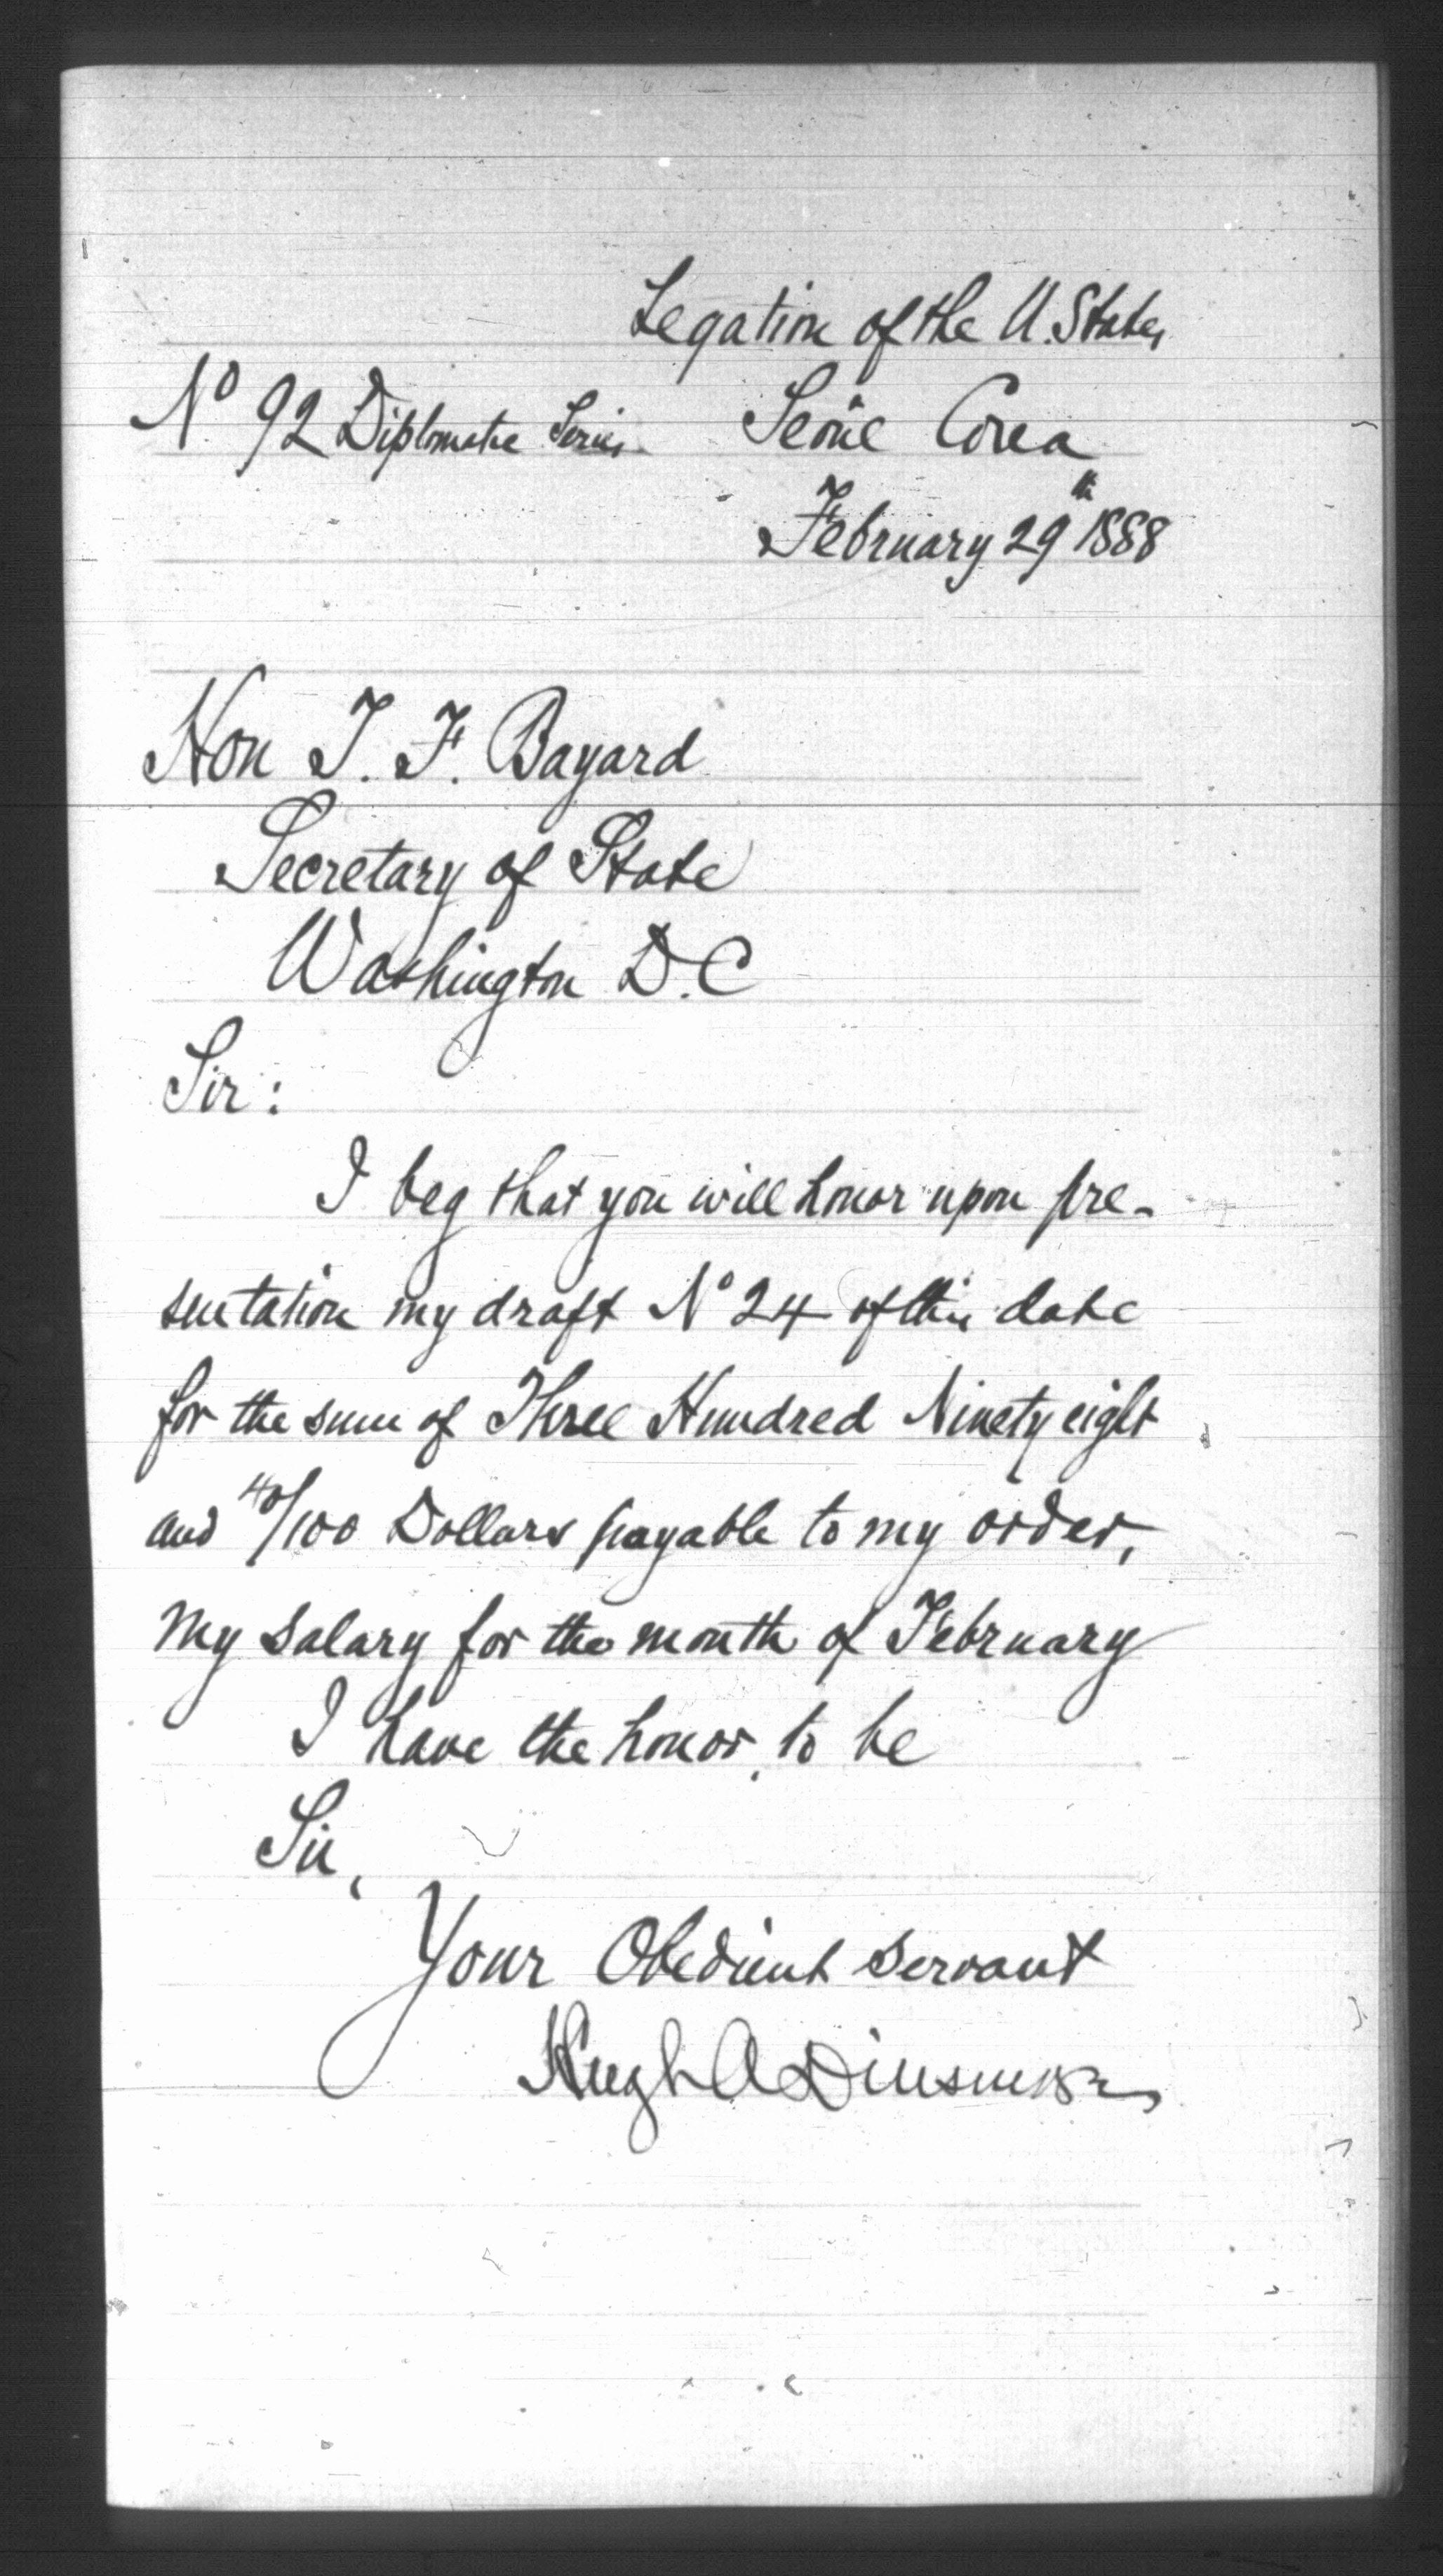 Legation of the U. States
No 92 Diplomatic Series Seoul Corea
February 29th 1888
Hon T. F. Bayard
Secretary of State
Washington D.C
Sir:
I beg that you will honor upon pre-
sentation my draft No 24 of this date
for the sum of Three Hundred Ninety eight
and 40/100 Dollars payable to my order,
my salary for the month of February
I have the honor, to be
Sir,
Your Obedient Servant
Hugh A Dinsmore